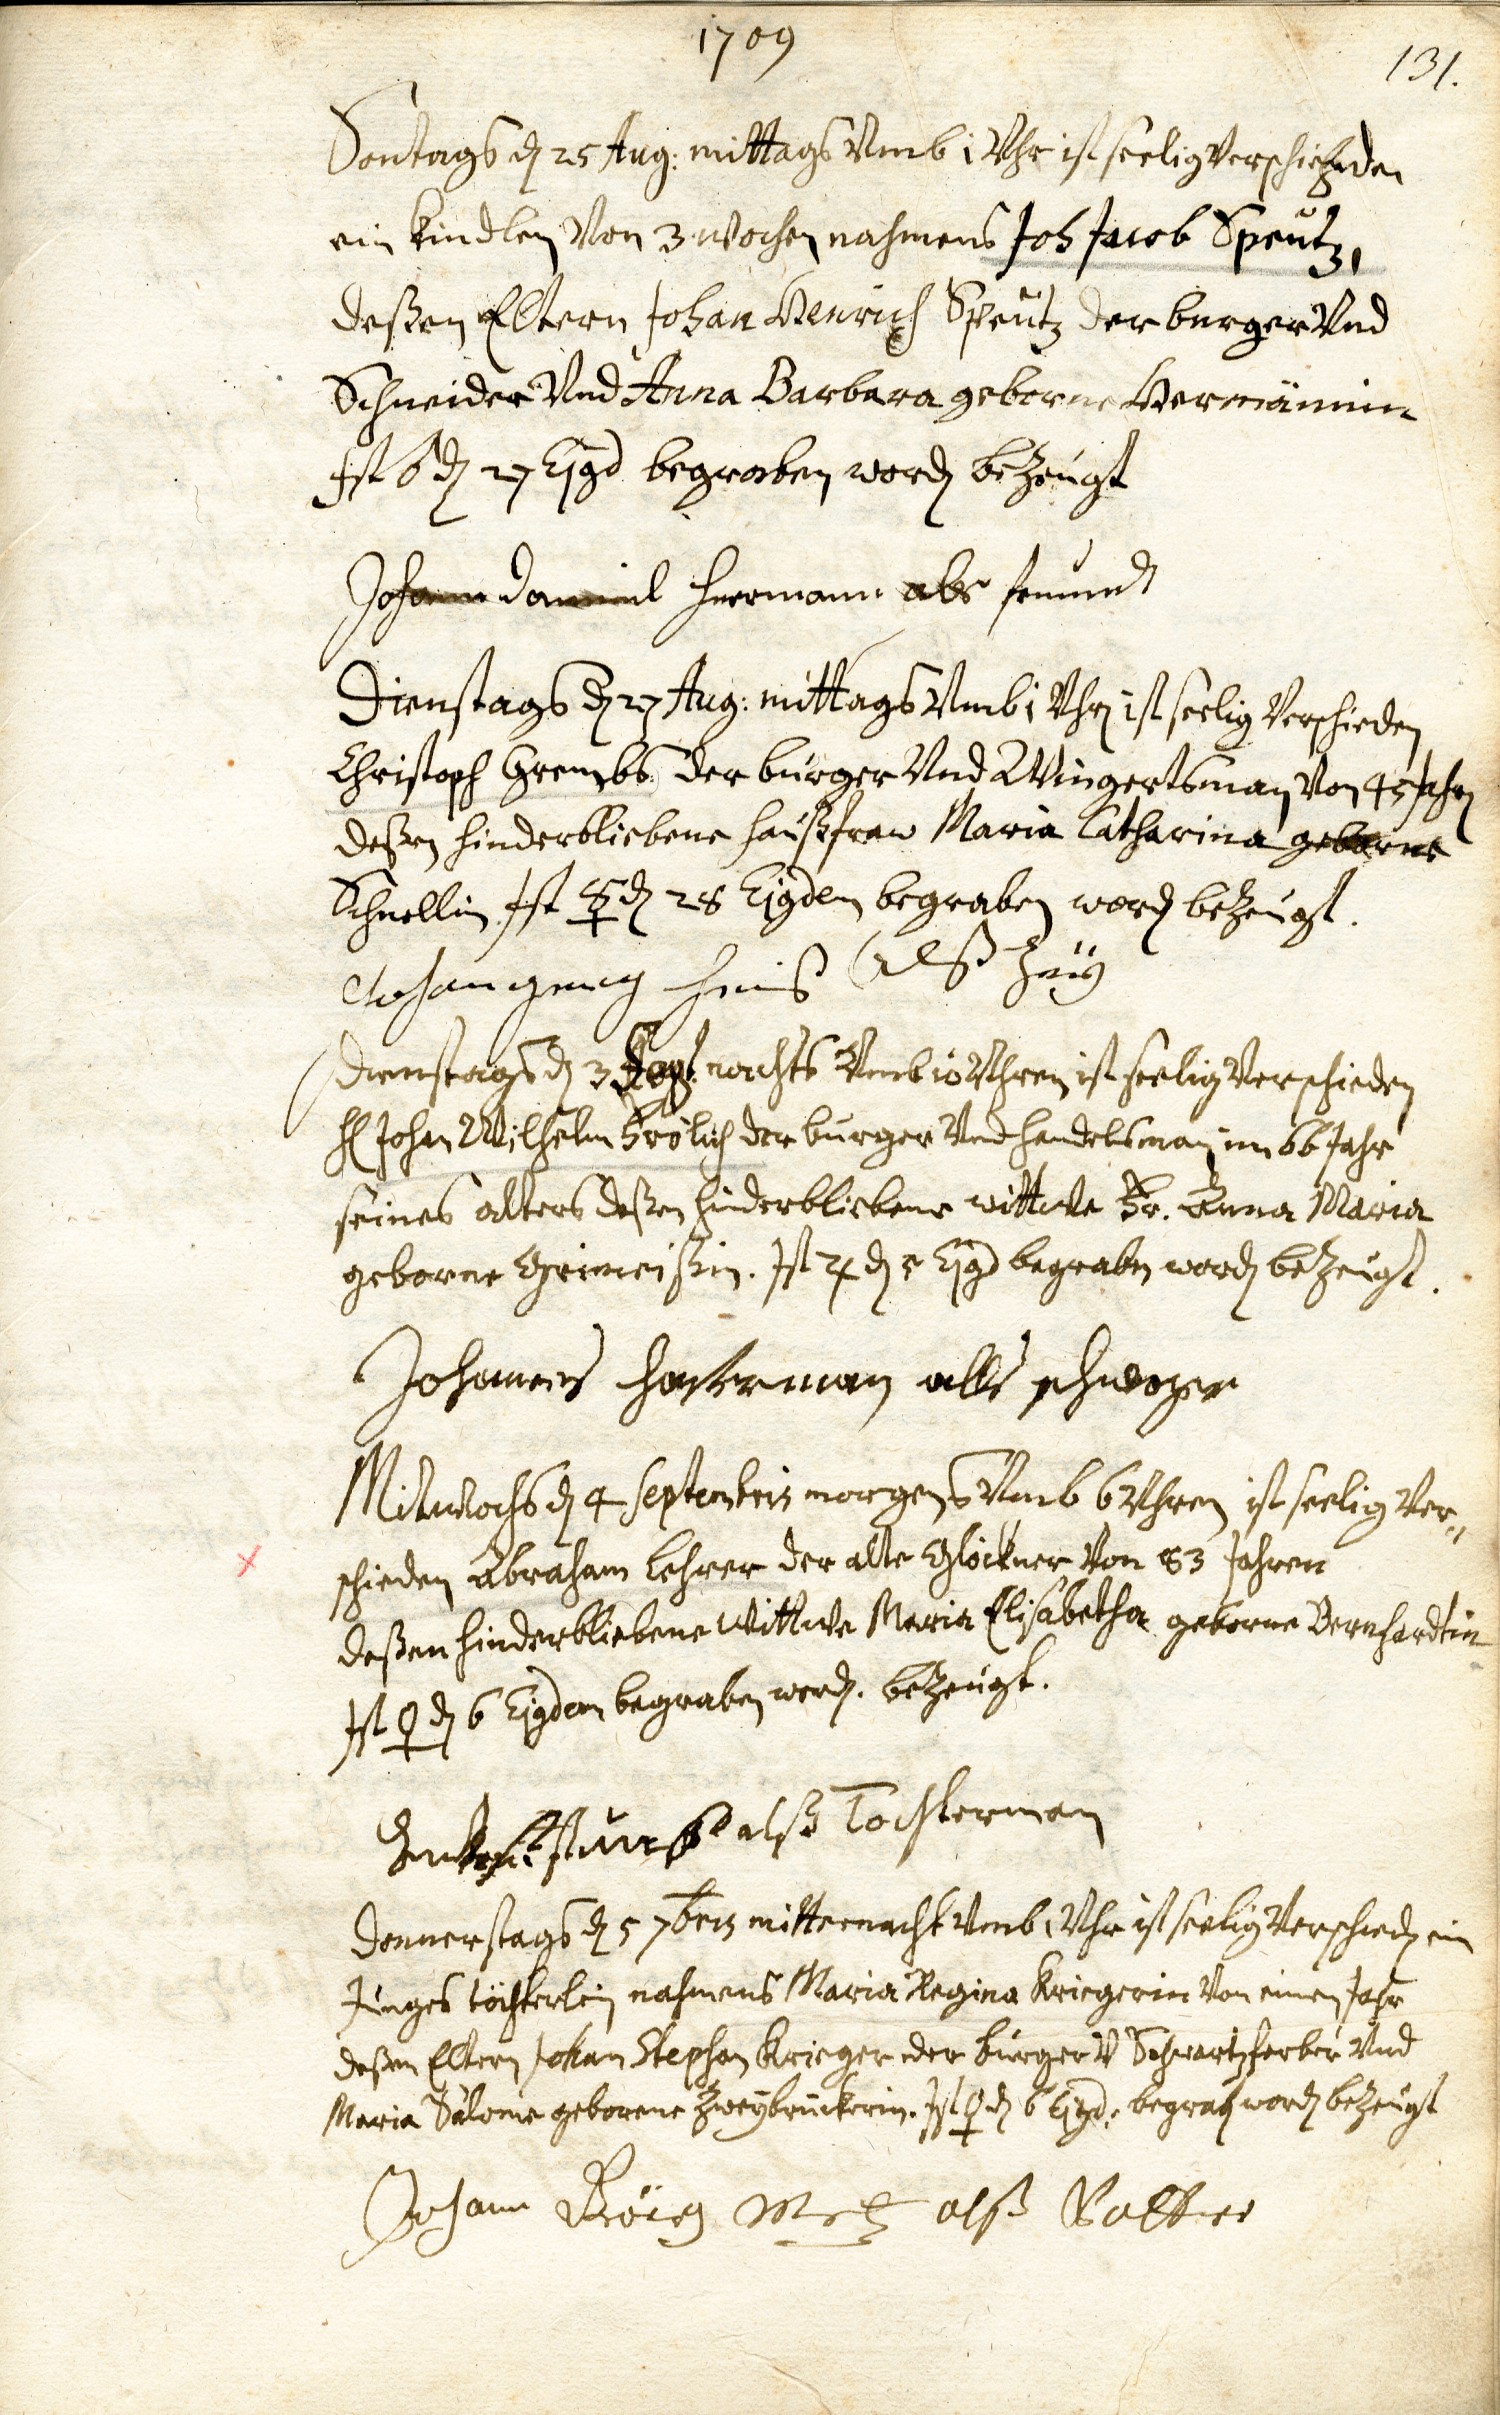 1709
131.
Sontags dn 25 Aug: mittags Vmb 1 Vhr ist seelig Verschiehden
ein Kindlen Von 3 wochen nahmens Joh Jacob Speutz,
deßen Eltern Johan Henrich Speutz der burger Vnd
Schneider Vnd Anna Barbara geborne Hermännin
Ist dn 27 Ejgd begraben word bezeugt
Johann Daniel Heermann als
Dienstags dn 27 Aug: mittags Vmb 1 Vhr ist seelig Verschieden
Christoph Grembs der burger Vnd Wingertsman Von 45 Jahr
deßen hinderbliebene haußfraw Maria Catharina geborne
Schnellin. Ist ☿ dn 28 Ejgden begraben word bezeugt.
Johan alß Zeug
Dienstags dn 3 Sept. nachts Vmb 10 Vhren ist seelig Verschieden
H Johan Wilhelm Frölich der burger Vnd handelsman im 66 Jahr
seines alters deßen hinderbliebene wittwe Fr. Anna Maria
geborne Grimeißin. Ist ♃ dn 5 Ejgd begraben word bezeugt.
Johannes Hasterman alls schwager
Mitwochs dn 4 Septembris morgens Vmb 6 Vhren ist seelig Ver„
schieden Abraham Lehrer der alte Glöckner Von 83 Jahren
deßen hinderbliebene wittwe Maria Elisabetha geborne Bernhardtin
Ist ♀ dn 6 Ejgden begraben word. bezeugt.
alß Tochterman
Donnerstags dn 5 7bris mitternacht Vmb 1 Vhr ist seelig Verschied ein
Junges töchterlein nahmens Maria Regina Kriegerin Von einen Jahr
deßen Eltern Johan Stephan Krieger der burger V Schwartzferber Vnd
Maria Salome geborene Zweybruckerin. Ist ♀ dn 6 Ejgd. begrab word bezeugt
Johann Görg Metz alß Vatter